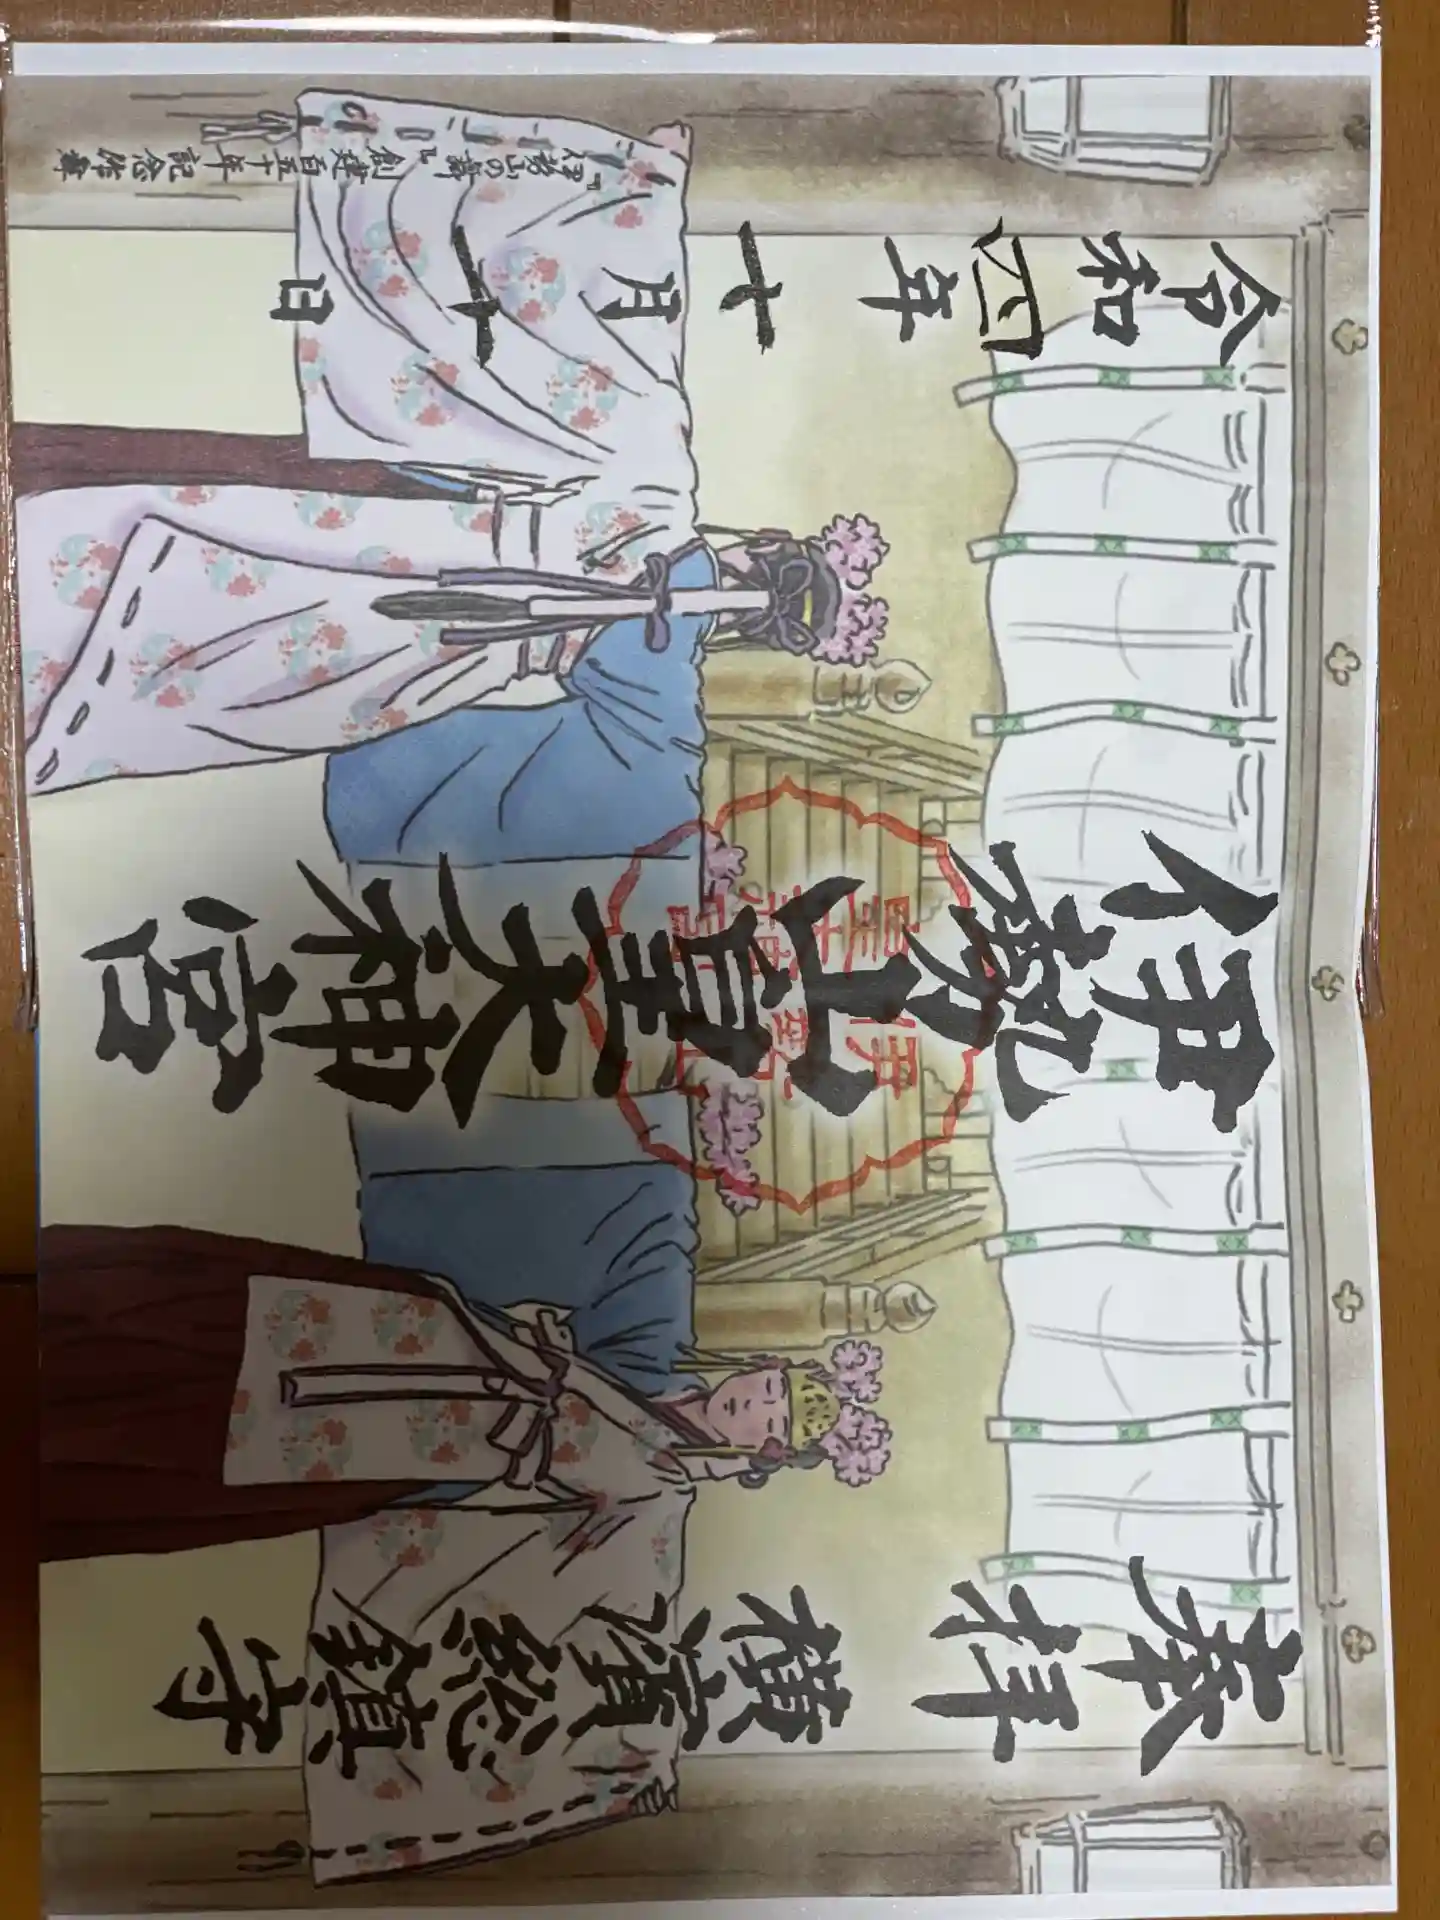 奉拝
横濱総鎮守
伊勢山皇大神宮
伊勢
山皇
大神宮
令和四年
十月十日
『伊勢山の舞』創建百五十年記念作舞